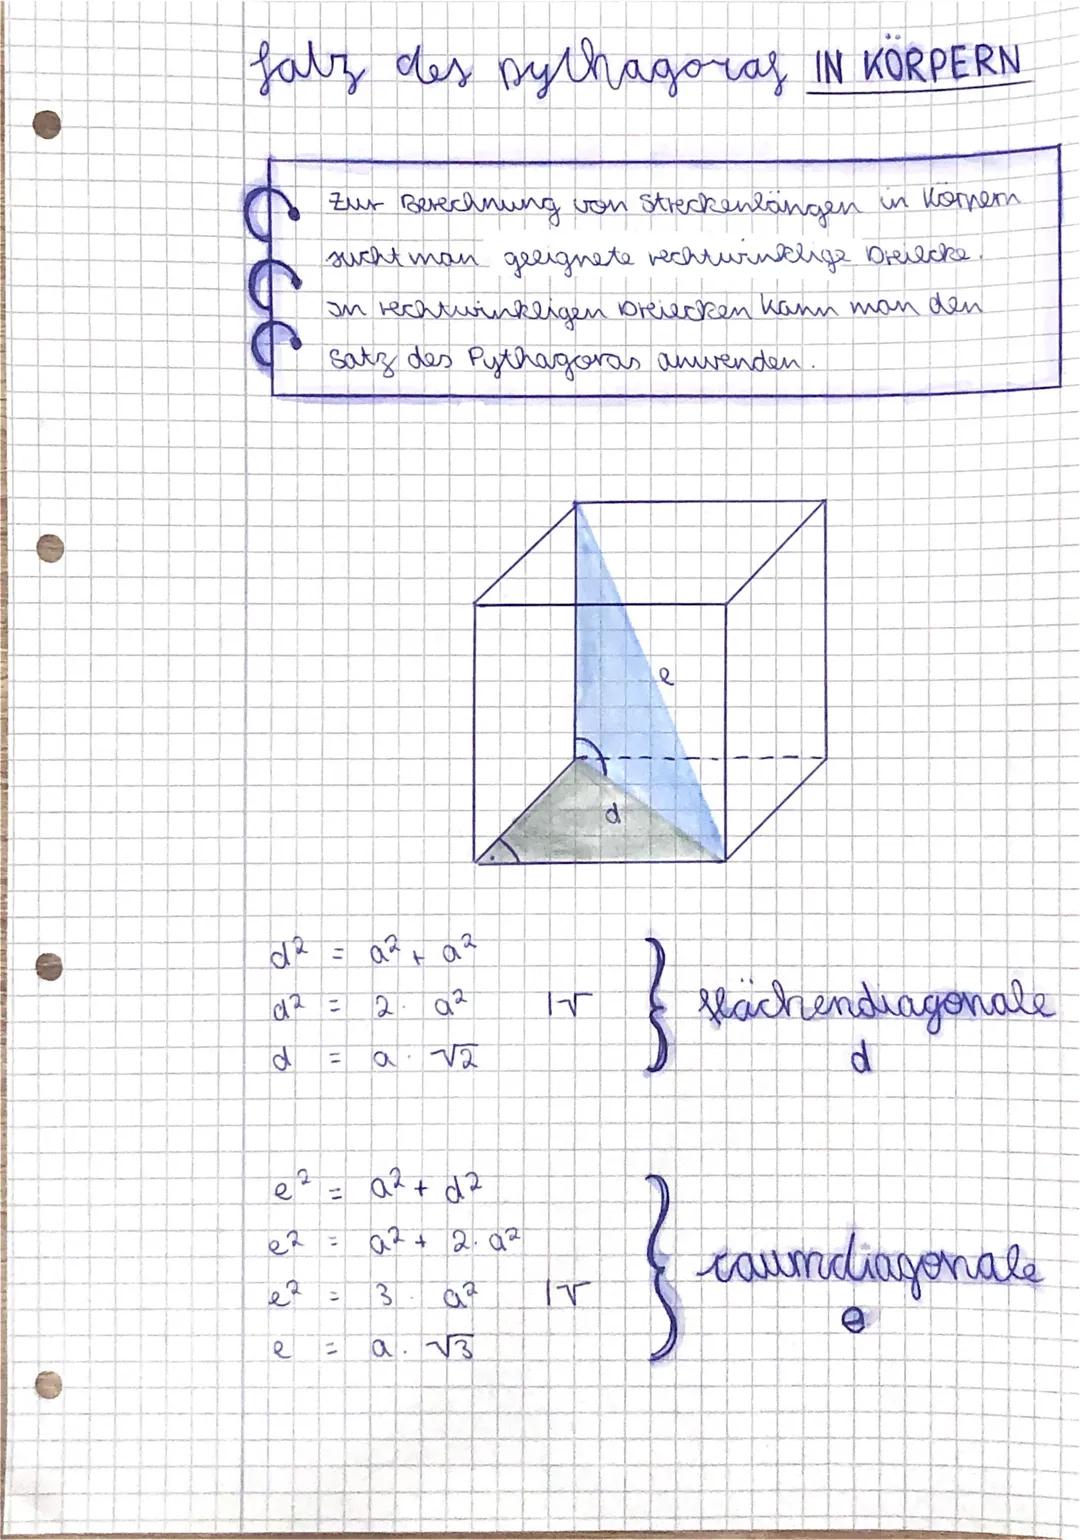 Satz des pythagoras IN KÖRPERN
Zur Berechnung von Streckenlängen in Körpern
sucht man geeignete rechtwinklige Dreiecke.
In rechtwinkligen Dreiecken kann man den
Satz des Pythagoras anwenden.
e
d
d² = a² + a²
d² = 2 · a² |√
d = a · √2
flächendiagonale
d
e² = a² + d²
e² = a² + 2 · a²
e² = 3 · a² |√
e = a · √3
raumdiagonale
e